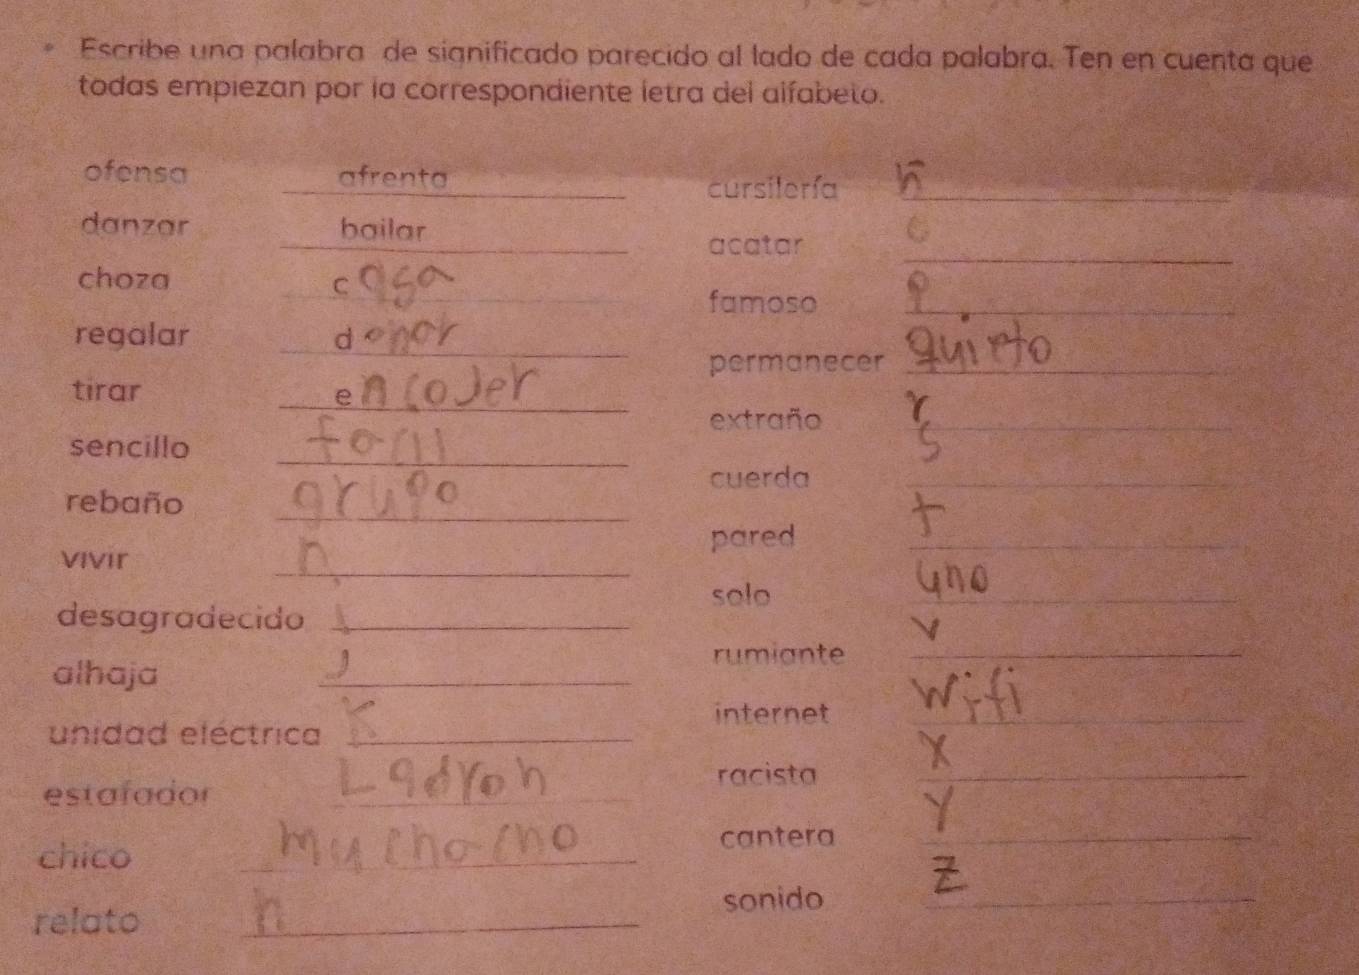 • Escribe una palabra de significado parecido al lado de cada palabra. Ten en cuenta que
todas empiezan por la correspondiente letra del alfabeto.
ofensa afrenta
danzar bailar
choza casa
regalar donar
tirar encojer
sencillo facil
rebaño grupo
vivir h
desagradecido i
alhaja j
unidad eléctrica K
estafador Ladron
chico muchacho
relato n
cursilería ñ
acatar o
famoso p
permanecer quieto
extraño r
cuerda s
pared t
solo uno
rumiante v
internet Wifi
racista x
cantera y
sonido z